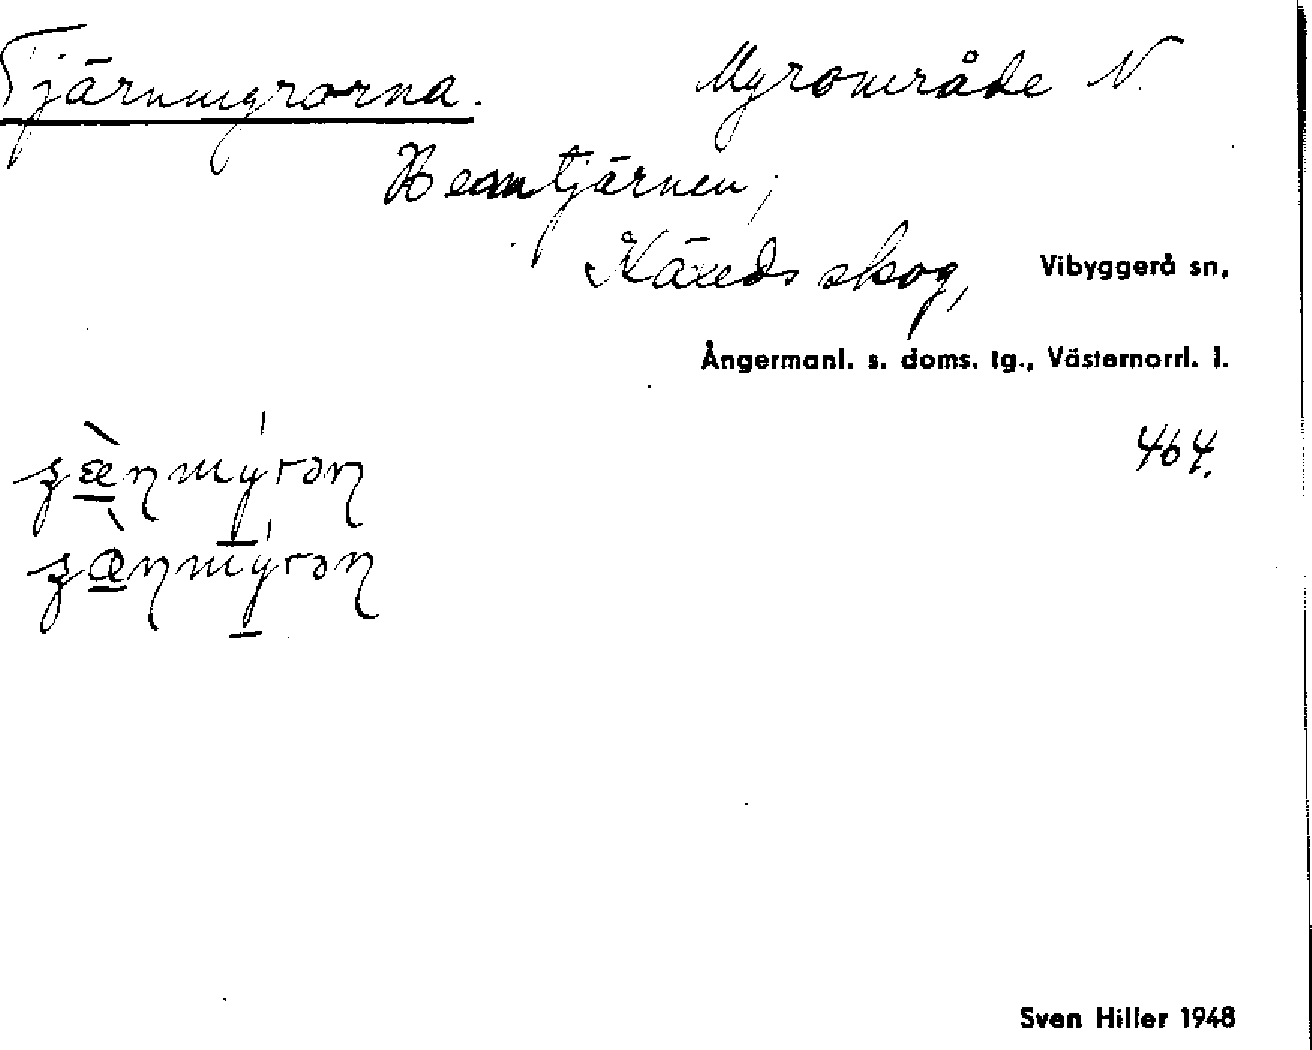 Tjärnmyrorna. Myrområde N.
Hemtjärnen,
Käxeds skog, Vibyggerå sn,
Ångermanl. s. doms. tg., Västernorrl. l.
464.
Sven Hiller 1948